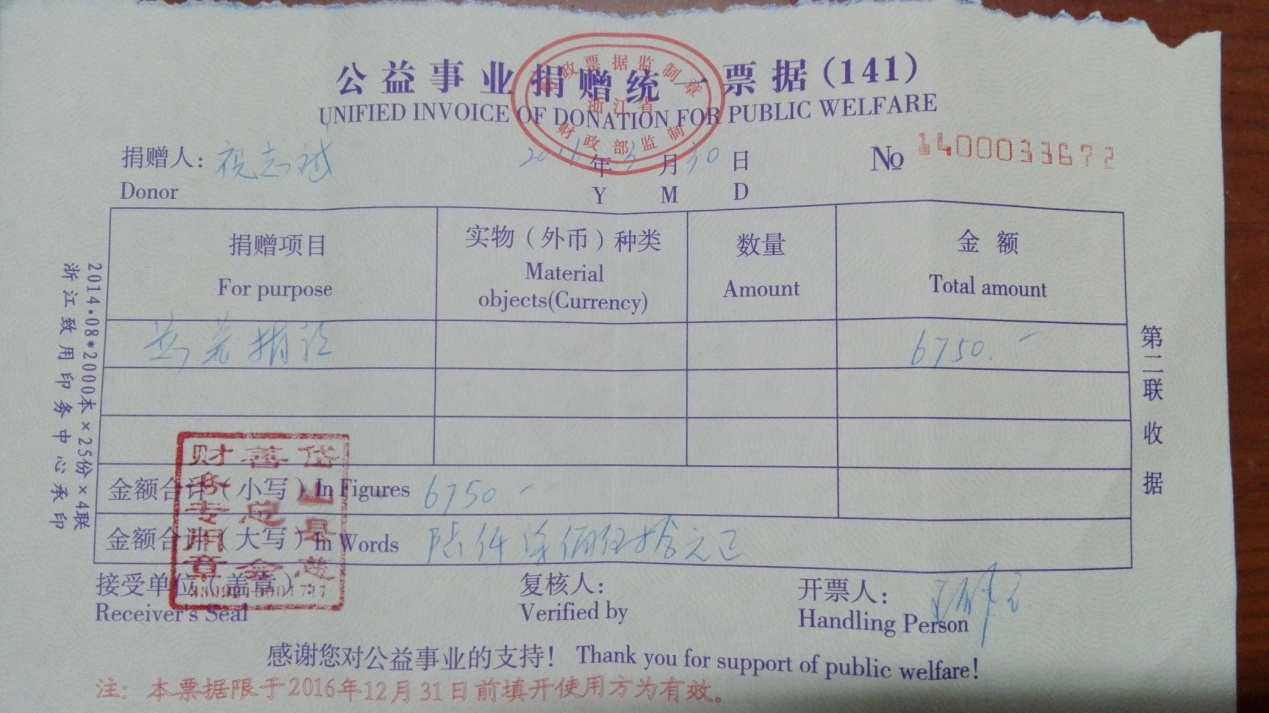 公益事业捐赠统一票据(141)
UNIFIED INVOICE OF DONATION FOR PUBLIC WELFARE
财政票据监制章
浙江省
财政部监制
捐赠人:祝志 年 月30日 № 1400033672
Donor Y M D
捐赠项目 实物(外币)种类 数量 金 额
For purpose Material objects(Currency) Amount Total amount
6750.-
金额合计(小写)In Figures 6750-
金额合计(大写)In Words 陆仟柒佰伍拾元正
岱山县慈善总会财务专用章
接受单位(盖章): 复核人: 开票人:
Receiver's Seal Verified by Handling Person
感谢您对公益事业的支持! Thank you for support of public welfare!
注:本票据限于2016年12月31日前填开使用方为有效。
2014·08*2000本×25份×4联
浙江致用印务中心承印
第二联 收据